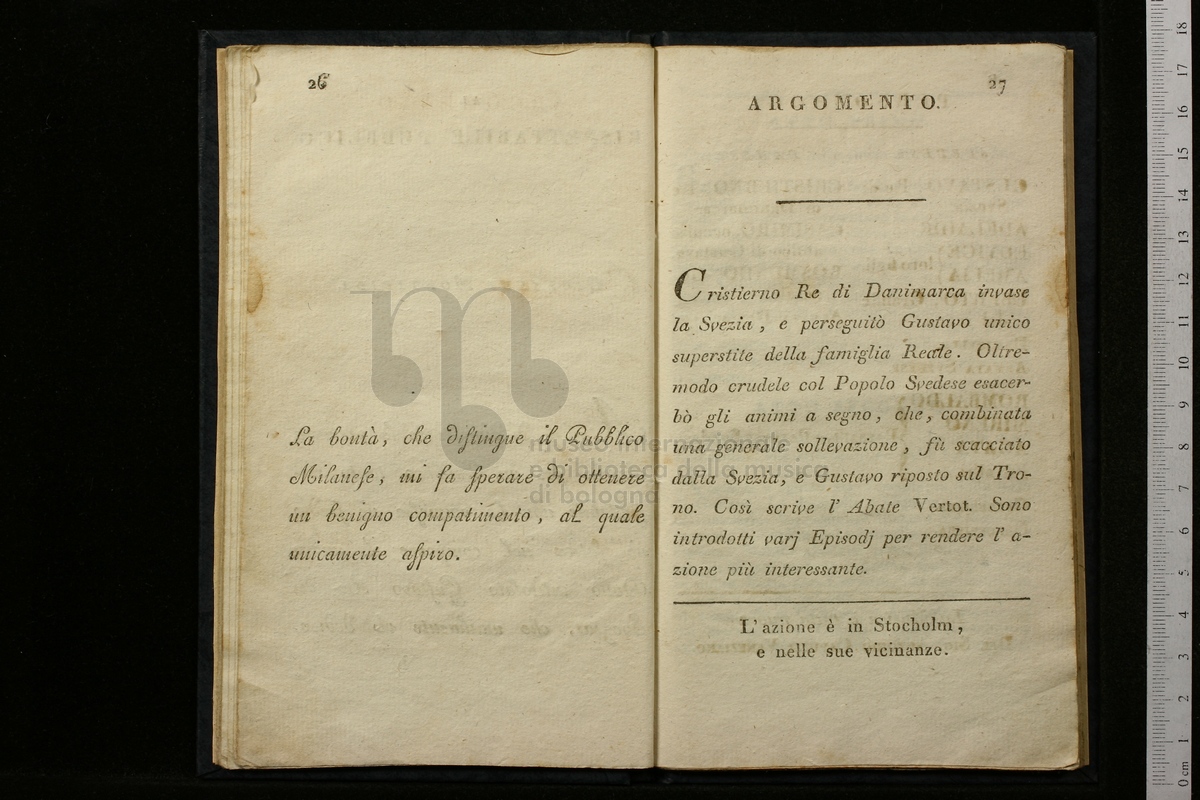 26
La bontà, che distingue il Pubblico
Milanese, mi fa sperare di ottenere
un benigno compatimento, al quale
unicamente aspiro.
27
ARGOMENTO.
Cristierno Re di Danimarca invase
la Svezia, e perseguitò Gustavo unico
superstite della famiglia Reale. Oltre-
modo crudele col Popolo Svedese esacer-
bò gli animi a segno, che, combinata
una generale sollevazione, fù scacciato
dalla Svezia, e Gustavo riposto sul Tro-
no. Così scrive l' Abate Vertot. Sono
introdotti varj Episodj per rendere l' a-
zione più interessante.
L'azione è in Stocholm,
e nelle sue vicinanze.
museo internazionale
e biblioteca della musica
di bologna
0 cm 1 2 3 4 5 6 7 8 9 10 11 12 13 14 15 16 17 18